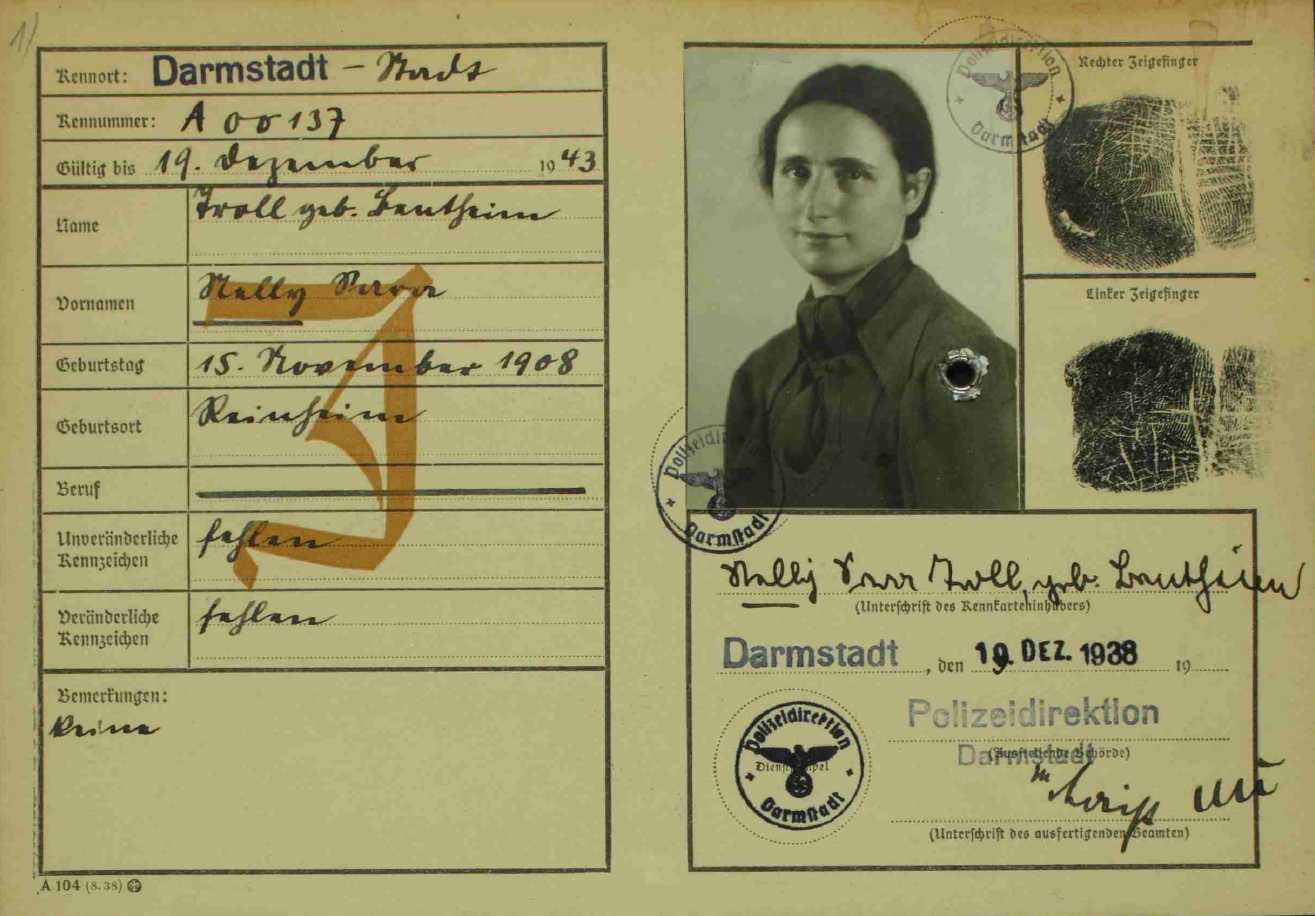 1)
Kennort: Darmstadt – Stadt
Kennummer: A 00137
Gültig bis 19. Dezember 1943
Name Troll geb. Bentheim
Vornamen Nelly Sara
Geburtstag 15. November 1908
Geburtsort Reinheim
Beruf
Unveränderliche Kennzeichen fehlen
Veränderliche Kennzeichen fehlen
Bemerkungen:
Keine
A 104 (8. 38)
J
Polizeidirektion Darmstadt
Rechter Zeigefinger
Linker Zeigefinger
Polizeidirektion Darmstadt
Nelly Sara Troll, geb. Bentheim
(Unterschrift des Kennkarteninhabers)
Darmstadt, den 19. DEZ. 1938 19
Polizeidirektion Darmstadt
Dienststempel
Polizeidirektion
Darmstadt
(Ausstellende Behörde)
(Unterschrift des ausfertigenden Beamten)